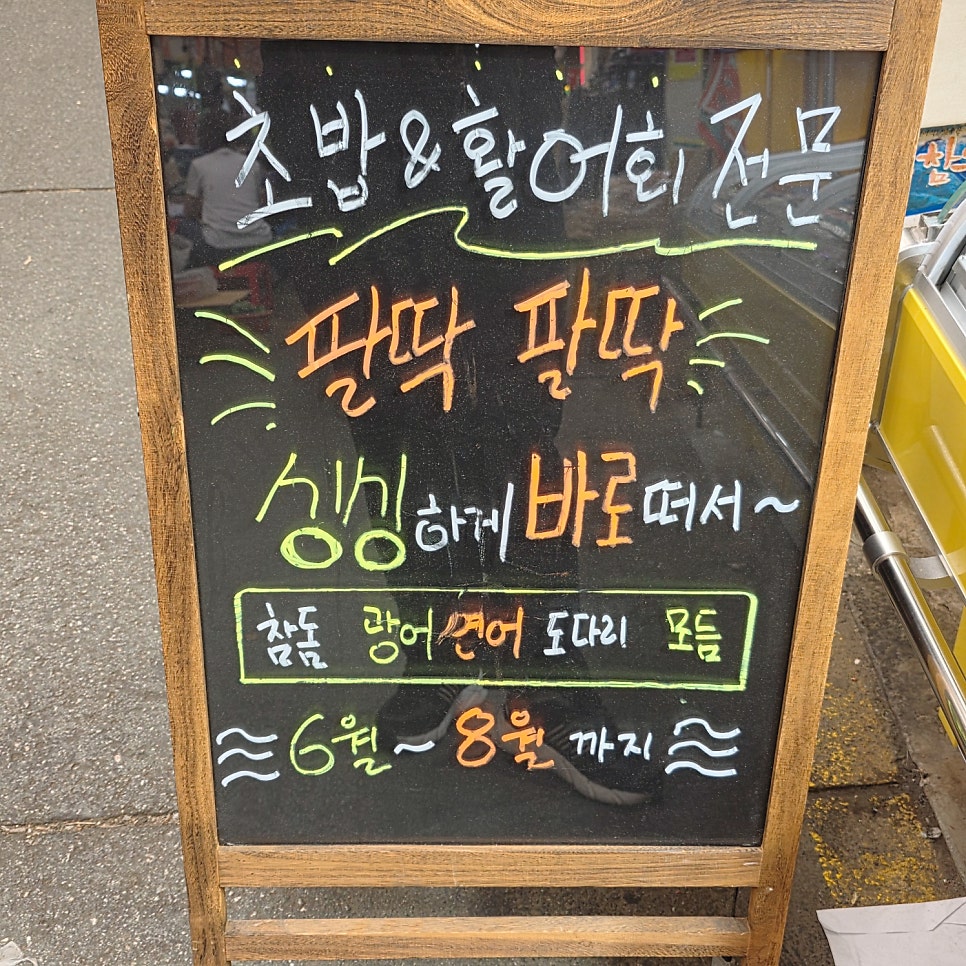 초밥 & 활어회 전문
팔딱 팔딱
싱싱하게 바로 떠서~
참돔 광어 연어 도다리 모듬
6월 ~ 8월 까지